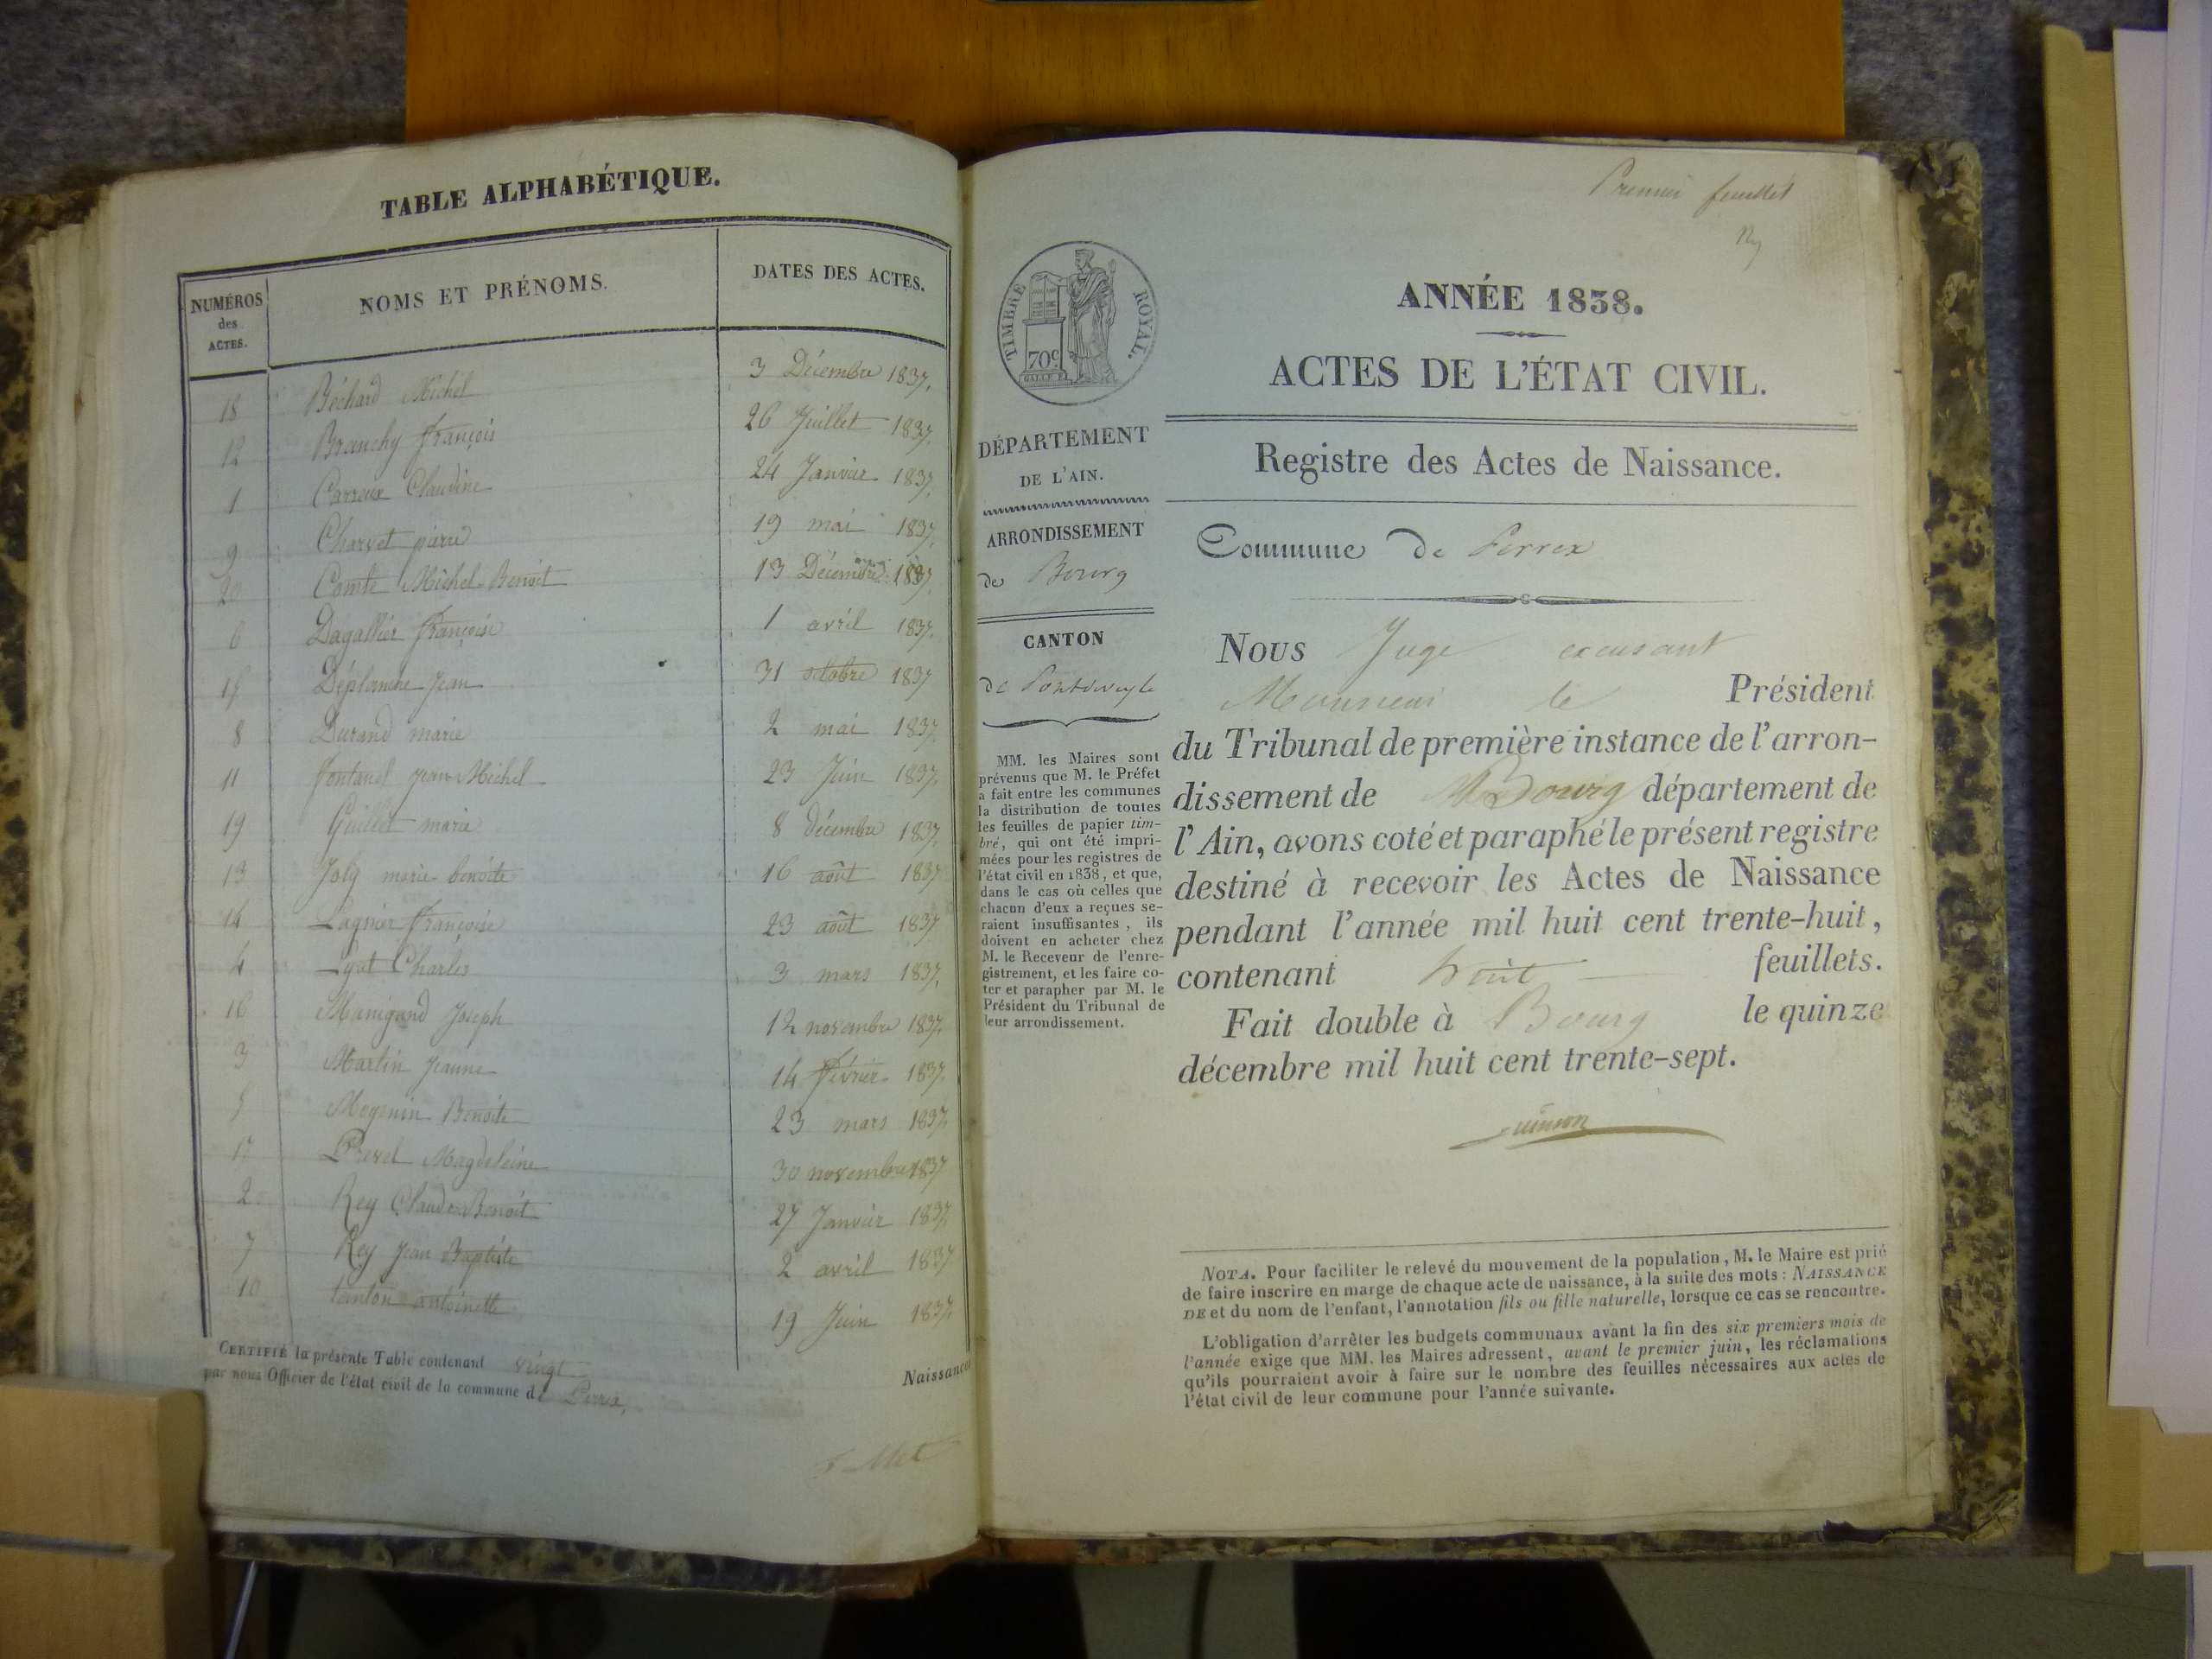 TABLE ALPHABÉTIQUE.
NUMÉROS des ACTES. NOMS ET PRÉNOMS. DATES DES ACTES.
18 Béchard Michel 3 Décembre 1837.
12 Branchy françois 26 Juillet 1837.
1 Carroux Claudine 24 Janvier 1837.
9 Charvet pierre 19 mai 1837.
20 Comte Michel Benoit 13 Décembre 1837.
6 Dagallier françoise 1 avril 1837.
15 Déplanche Jean 31 octobre 1837
8 Durand marie 2 mai 1837.
11 fontanel jean Michel 23 Juin 1837.
19 Guillet marie 8 décembre 1837.
13 Joly marie benoite 16 août 1837
14 Lagnier françoise 23 août 1837
4 Lyat Charles 3 mars 1837.
16 Manigand Joseph 12 novembre 1837.
3 Martin jeanne 14 février 1837.
5 Mogenin Benoite 23 mars 1837.
17 Prevel Magdeleine 30 novembre 1837
2 Rey Claude Benoit 27 Janvier 1837.
7 Rey Jean Baptiste 2 avril 1837.
10 tanton antoinette 19 Juin 1837.
CERTIFIÉ la présente Table contenant vingt
Naissances
par nous Officier de l'état civil de la commune de Perrex,
Premier feuillet
TIMBRE ROYAL.
70c
ANNÉE 1838.
ACTES DE L'ÉTAT CIVIL.
DÉPARTEMENT
DE L'AIN.
ARRONDISSEMENT
de Bourg
CANTON
de Pontdeveyle
MM. les Maires sont
prévenus que M. le Préfet
a fait entre les communes
la distribution de toutes
les feuilles de papier tim-
bré, qui ont été impri-
mées pour les registres de
l'état civil en 1838, et que,
dans le cas où celles que
chacun d'eux a reçues se-
raient insuffisantes, ils
doivent en acheter chez
M. le Receveur de l'enre-
gistrement, et les faire co-
ter et parapher par M. le
Président du Tribunal de
leur arrondissement.
Registre des Actes de Naissance.
Commune de Perrex
Nous Juge excusant
Monsieur le Président
du Tribunal de première instance de l'arron-
dissement de Bourg département de
l'Ain, avons coté et paraphé le présent registre
destiné à recevoir les Actes de Naissance
pendant l'année mil huit cent trente-huit,
contenant huit feuillets.
Fait double à Bourg le quinze
décembre mil huit cent trente-sept.
NOTA. Pour faciliter le relevé du mouvement de la population, M. le Maire est prié
de faire inscrire en marge de chaque acte de naissance, à la suite des mots : NAISSANCE
DE et du nom de l'enfant, l'annotation fils ou fille naturelle, lorsque ce cas se rencontre.
L'obligation d'arrêter les budgets communaux avant la fin des six premiers mois de
l'année exige que MM. les Maires adressent, avant le premier juin, les réclamations
qu'ils pourraient avoir à faire sur le nombre des feuilles nécessaires aux actes de
l'état civil de leur commune pour l'année suivante.